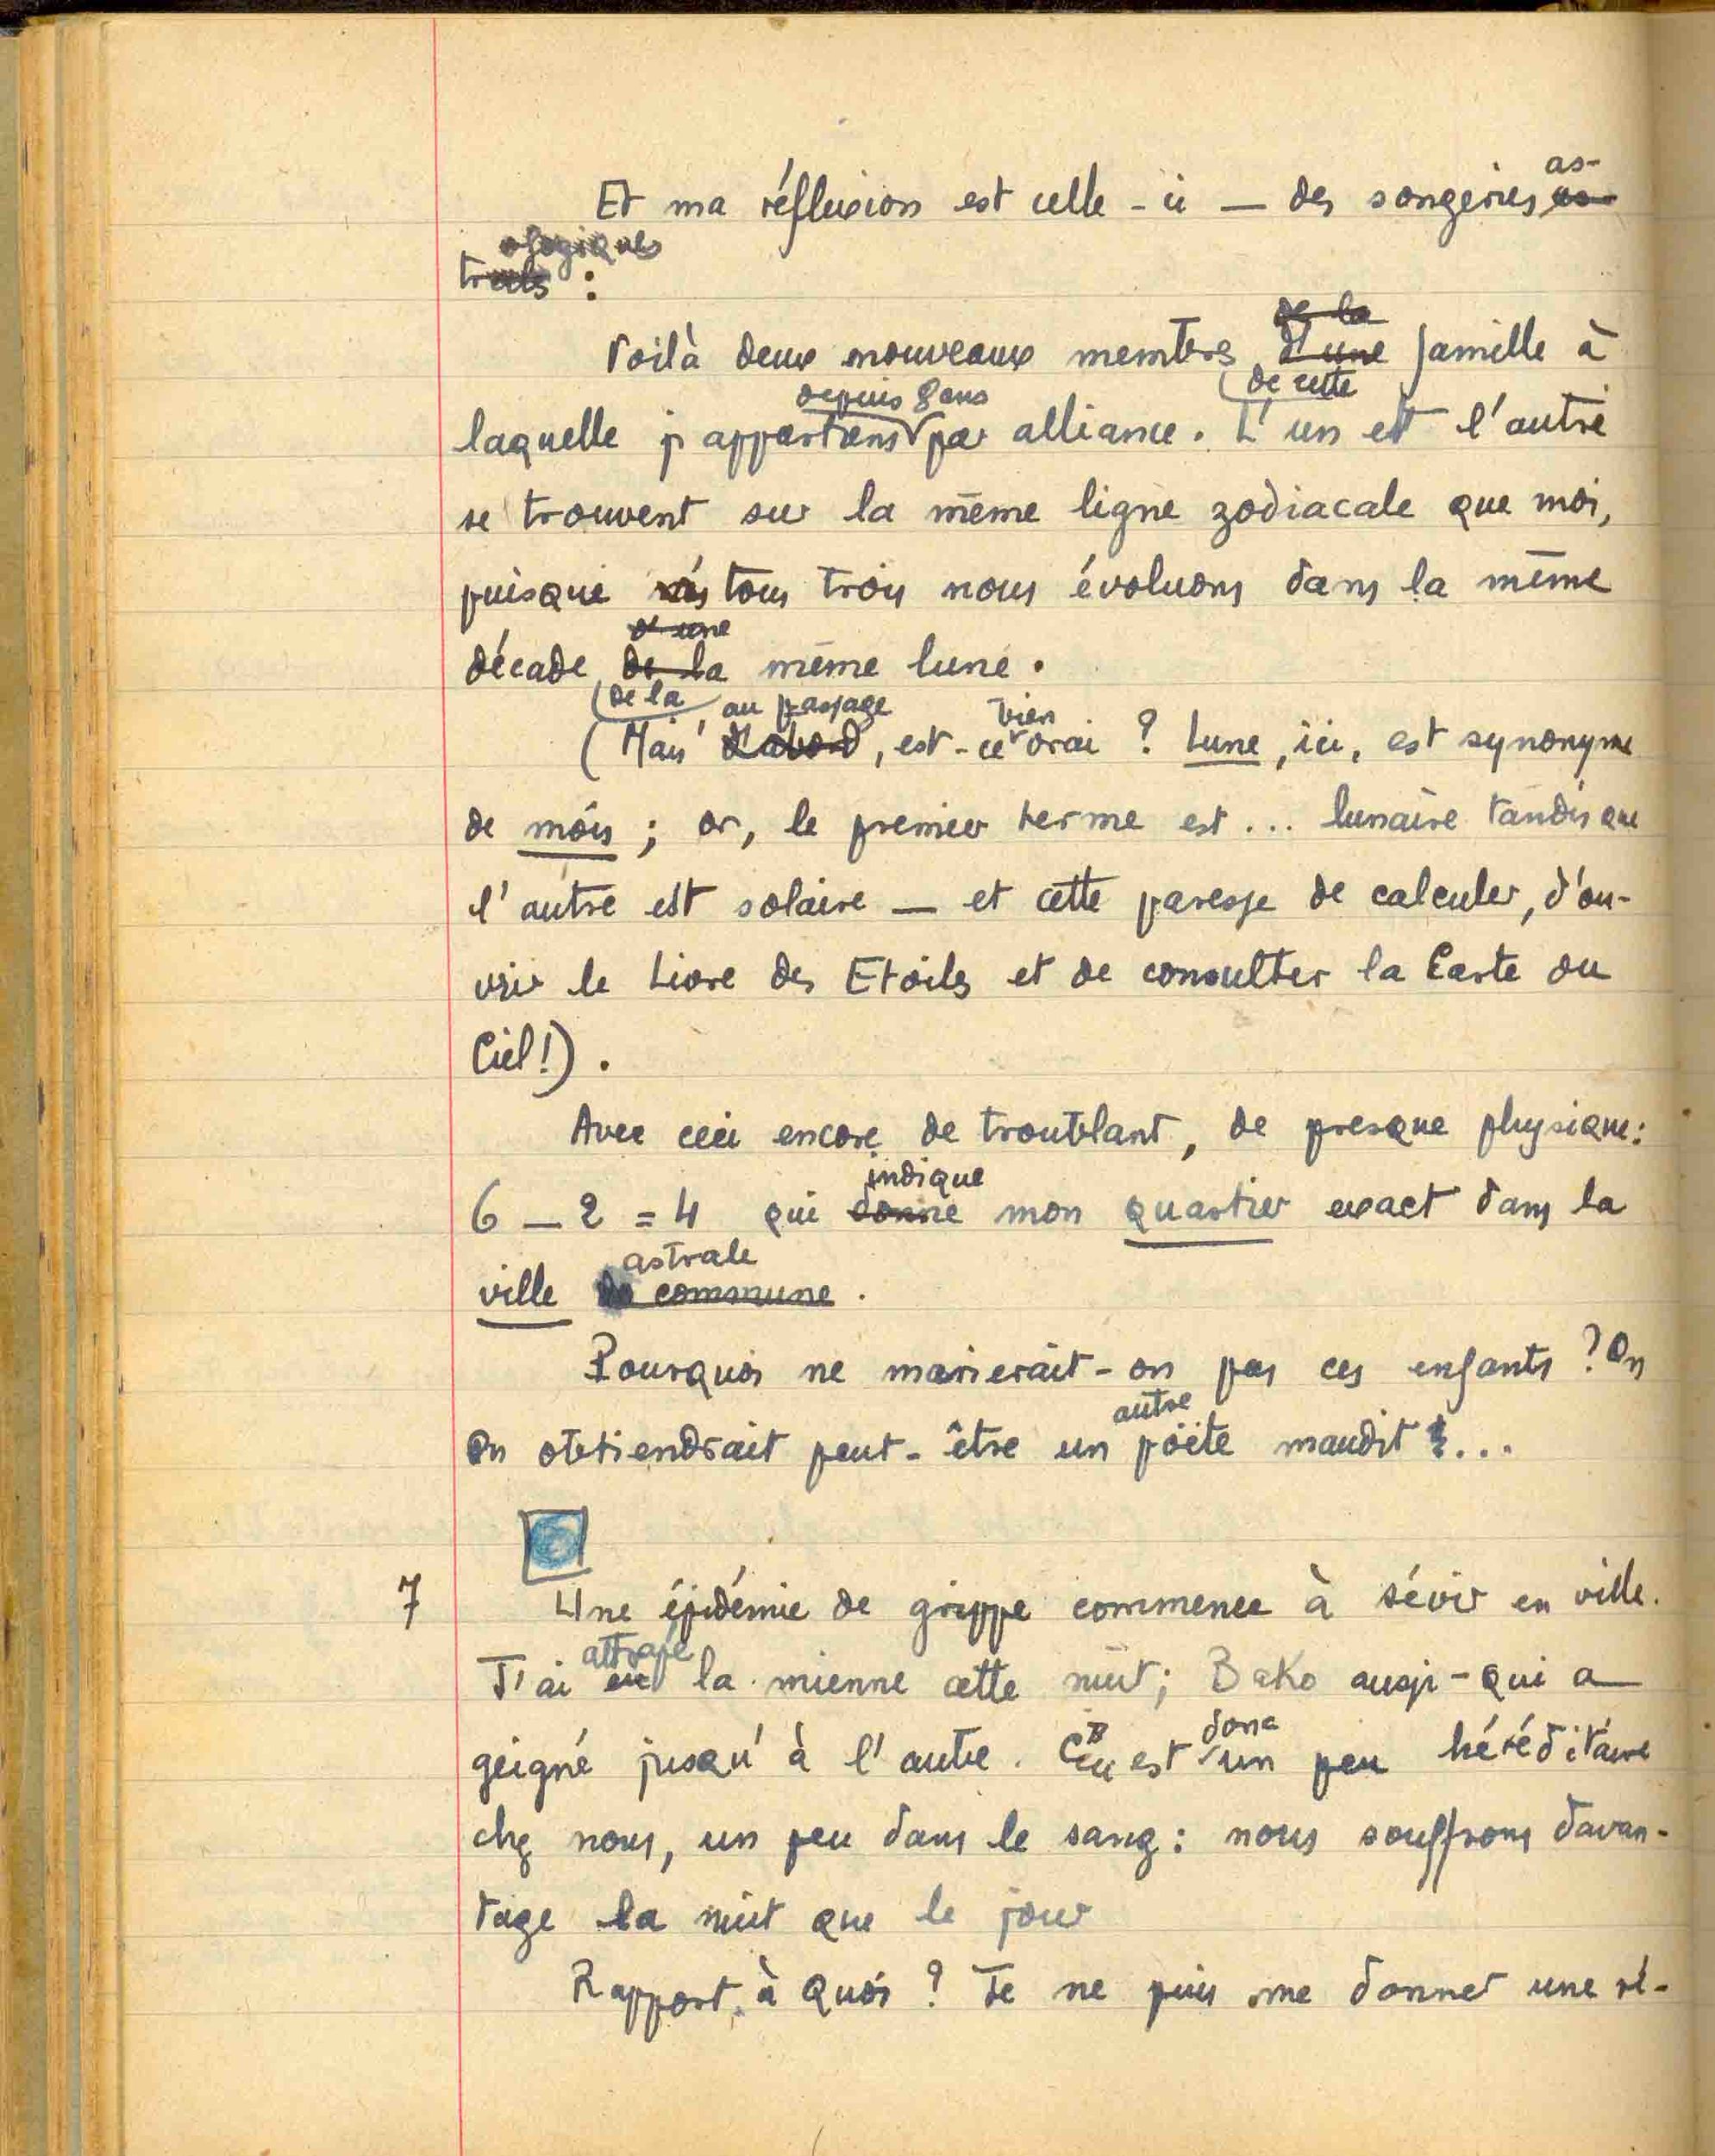 Et ma réflexion est celle-ci — des songeries as-
trologiques :
Voilà deux nouveaux membres de cette famille à
laquelle j'appartiens depuis 8 ans par alliance. L'un et l'autre
se trouvent sur la même ligne zodiacale que moi,
puisque tous trois nous évoluons dans la même
décade de la même lune.
(Mais au passage, est-ce bien vrai ? Lune, ici, est synonyme
de mois ; or, le premier terme est... lunaire tandis que
l'autre est solaire — et cette paresse de calculer, d'ou-
vrir le Livre des Etoiles et de consulter la Carte du
Ciel!).
Avec ceci encore de troublant, de presque physique:
6 — 2 = 4 qui indique mon quartier exact dans la
ville astrale.
Pourquoi ne marierait-on pas ces enfants ? On
On obtiendrait peut-être un autre poëte maudit...
7 Une épidémie de grippe commence à sévir en ville.
J'ai attrapé la mienne cette nuit; Bako aussi - qui a
geigné jusqu'à l'aube. C'est donc un peu héréditaire
chez nous, un peu dans le sang: nous souffrons davan-
tage la nuit que le jour
Rapport à quoi ? Je ne puis me donner une ré-